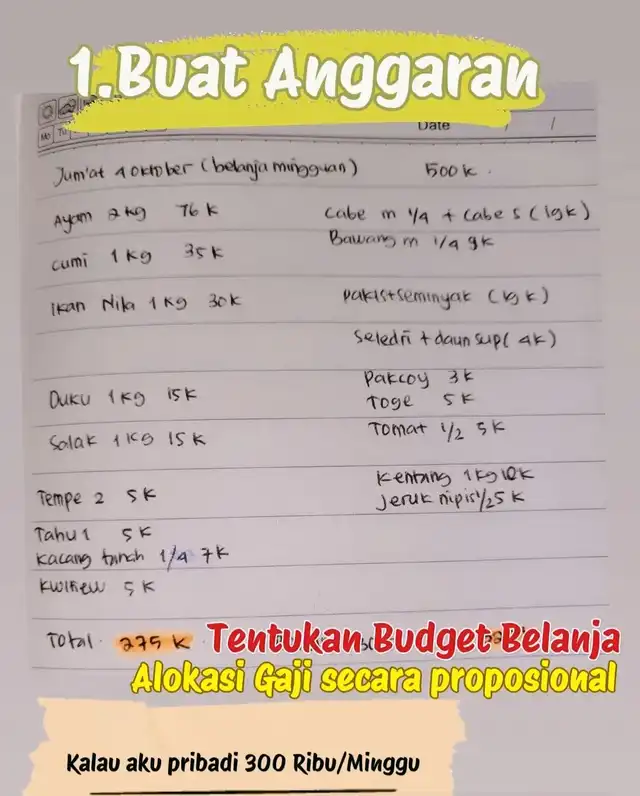 1.Buat Anggaran
Mo Tu
Date / /
Jum'at 4 oktober (belanja mingguan) 500 k.
Ayam 2 kg 76 k
cumi 1 kg 35 k
Ikan Nila 1 kg 30k
Duku 1 kg 15 k
Salak 1 kg 15 k
Tempe 2 5k
Tahu 1 5k
kacang tanah 1/4 7k
kwitiew 5k
Total 275 k
cabe m 1/4 + cabe s (19k)
Bawang m 1/4 9k
pakis+seminyak
seledri + daun sup (4k)
pakcoy 3k
Toge 5k
Tomat 1/2 5k
kentang 1 kg
Jeruk nipis 1/2 5k
Tentukan Budget Belanja
Alokasi Gaji secara proposional
Kalau aku pribadi 300 Ribu/Minggu